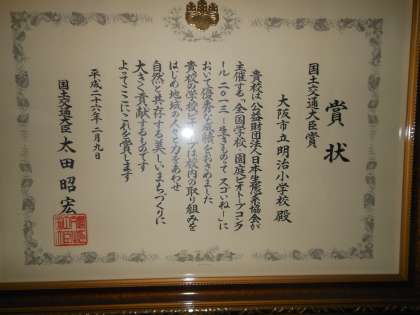 賞状
国土交通大臣賞
大阪市立明治小学校殿
貴校は公益財団法人日本生態系協会が
主催する「全国学校・園庭ビオトープコンク
ール二〇一三ー生きものって スゴいねー」に
おいて優秀な成績をおさめました
貴校の学校ビオトープは校内の取り組みを
はじめ地域の人々と力をあわせ
自然と共存する美しいまちづくりに
大きく貢献するものです
よってここにこれを賞します
平成二十六年二月九日
国土交通大臣 太田昭宏